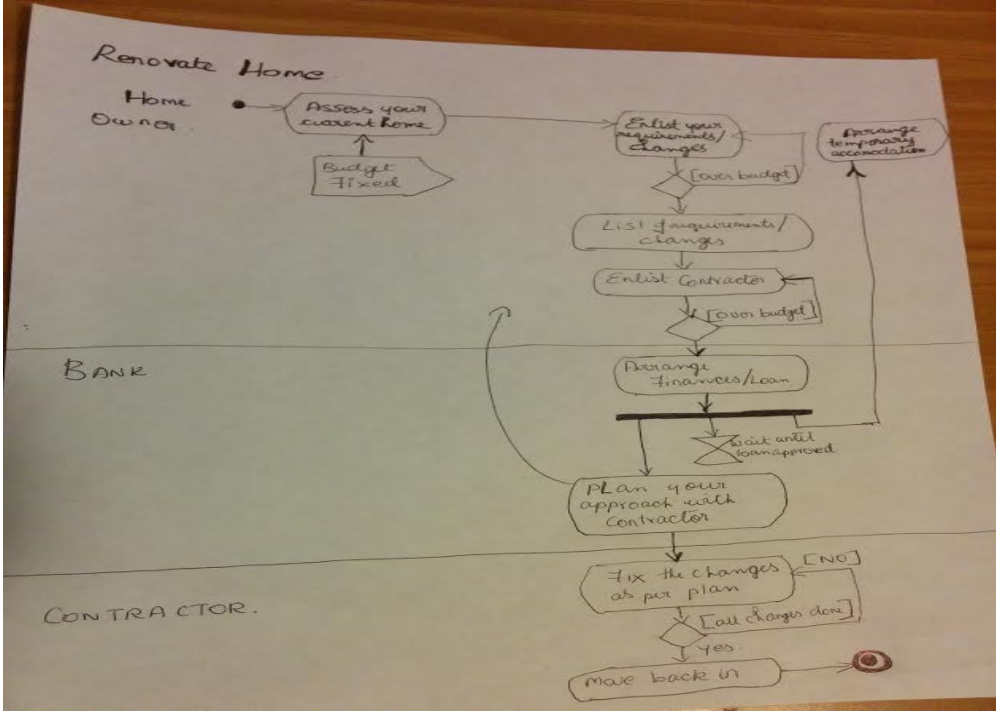 Renovate Home
Home
Owner
Assess your
current home
Budget
Fixed
Enlist your
requirements/
changes
[over budget]
Arrange
temporary
accomodation
List requirements/
changes
Enlist Contractor
[over budget]
BANK
Arrange
Finances/Loan
wait until
loan approved
PLan your
approach with
Contractor
CONTRACTOR.
Fix the changes
as per plan
[NO]
[all changes done]
yes.
move back in